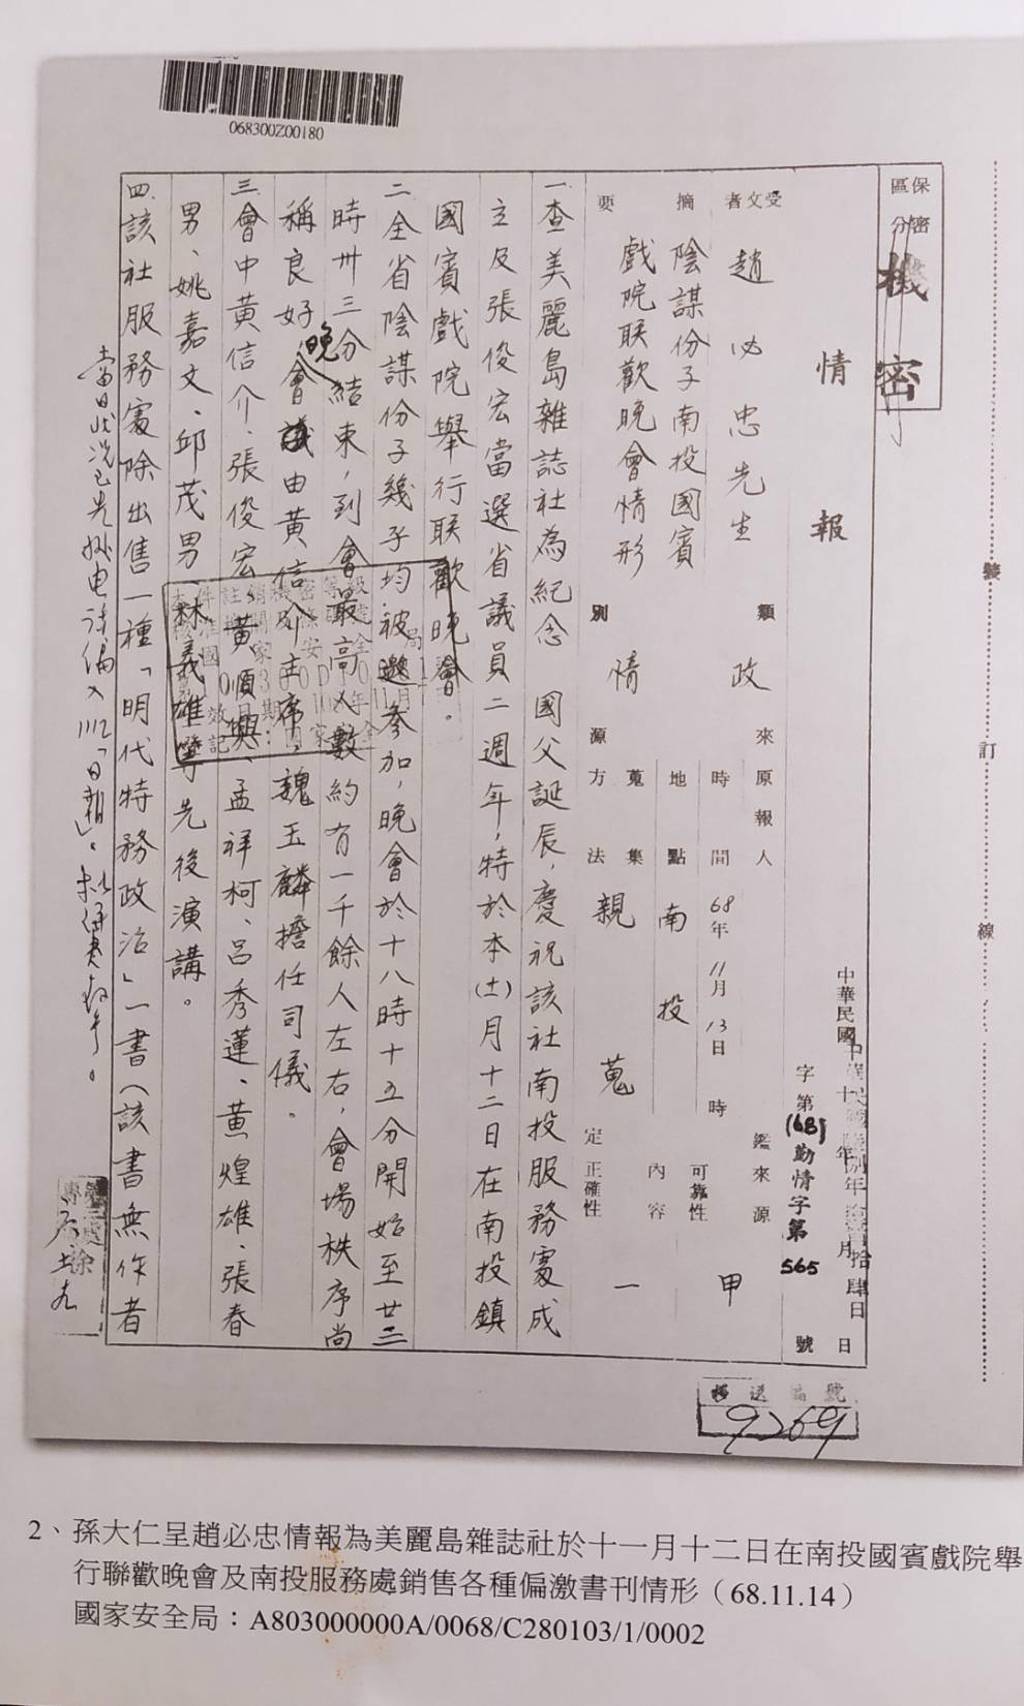 068300Z00180
保密區分
機密
情報
中華民國
字第(68)勤情字第565號
受文者 趙必忠先生
摘要 陰謀份子南投國賓
戲院联歡晚會情形
類別 政情
來源 原報人
時間 68年11月13日 時
地點 南投
蒐集方法 親蒐
鑑定
來源可靠性 甲
內容正確性 一
一.查美麗島雜誌社為紀念 國父誕辰,慶祝該社南投服務處成
立及張俊宏當選省議員二週年,特於本(十一)月十二日在南投鎮
國賓戲院舉行联歡晚會。
二.全省陰謀份子幾乎均被邀參加,晚會於十八時十五分開始至廿三
時卅三分結束,到會最高人數約有一千餘人左右,會場秩序尚
稱良好,晚會由黃信介主席,魏玉麟擔任司儀。
三.會中黃信介、張俊宏、黃順興、孟祥柯、呂秀蓮、黃煌雄、張春
男、姚嘉文、邱茂男、林義雄等先後演講。
四.該社服務處除出售一種「明代特務政治」一書(該書無作者
裝訂線
移送編號
9269
2、孫大仁呈趙必忠情報為美麗島雜誌社於十一月十二日在南投國賓戲院舉
行聯歡晚會及南投服務處銷售各種偏激書刊情形(68.11.14)
國家安全局:A803000000A/0068/C280103/1/0002